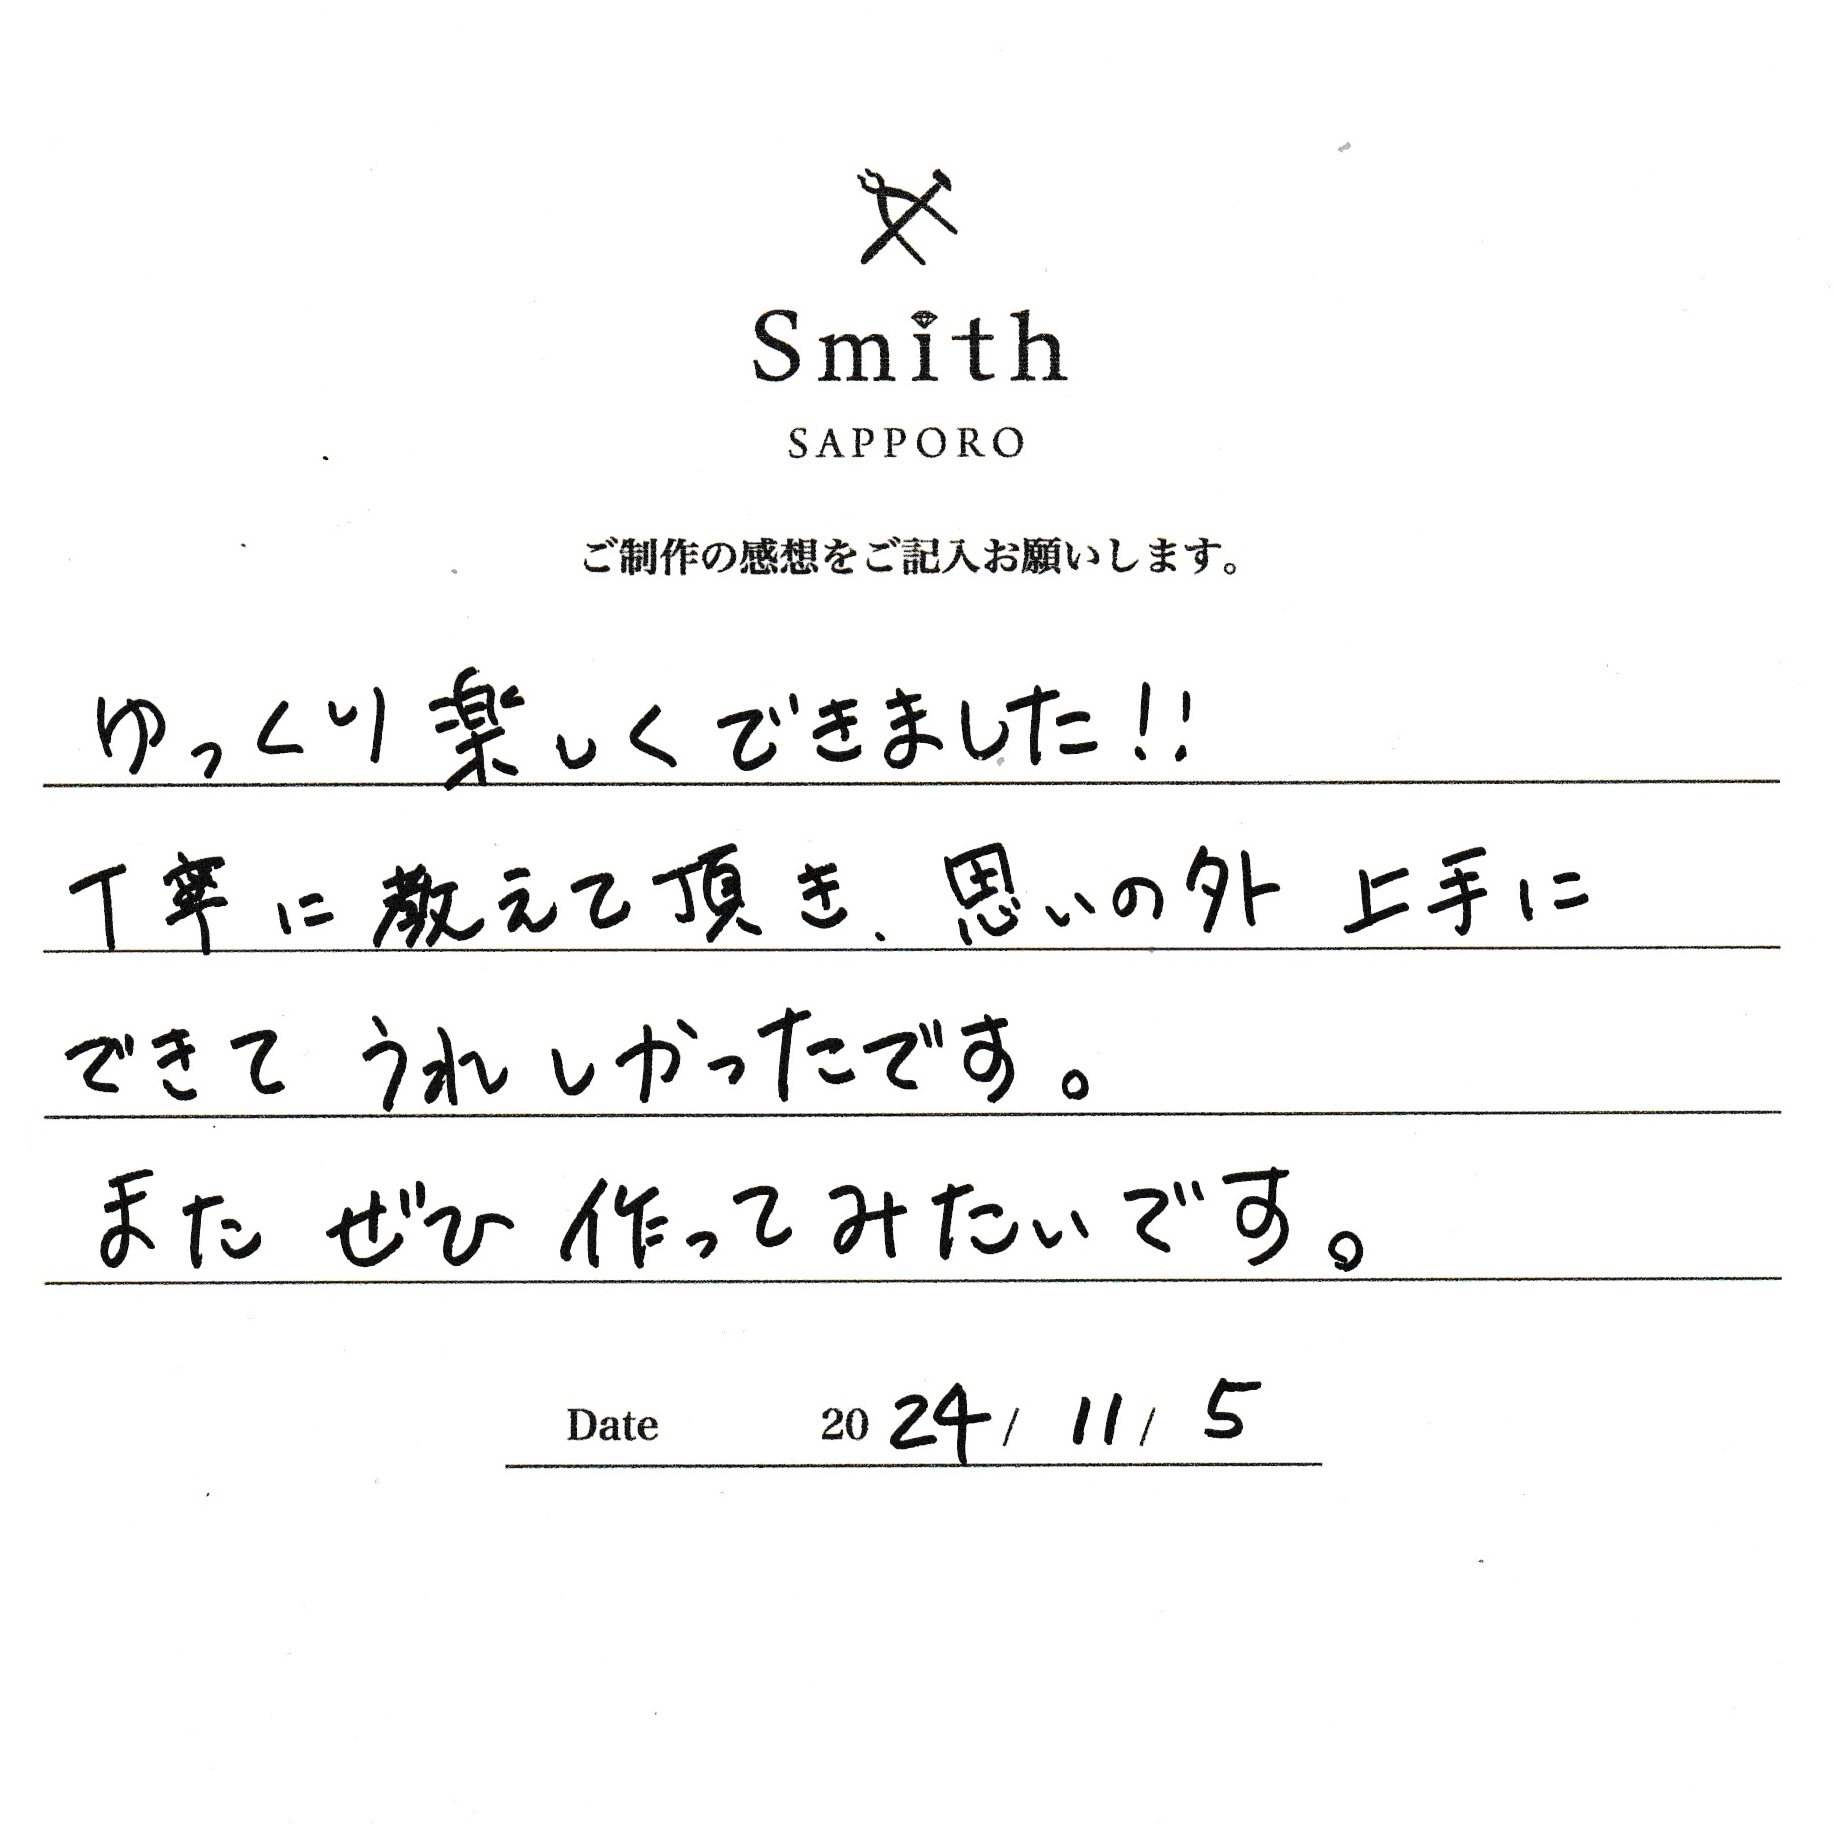 Smith
SAPPORO
ご制作の感想をご記入お願いします。
ゆっくり楽しくできました!!
丁寧に教えて頂き、思いの外 上手に
できて うれしかったです。
また ぜひ 作ってみたいです。
Date 2024/ 11/ 5